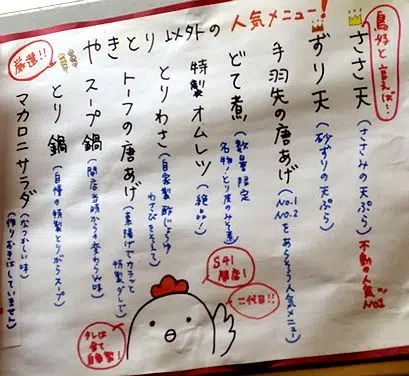 厳選!! やきとり以外の人気メニュー!
鳥好と言えば…
ささ天 (ささみの天ぷら) 不動の人気No.1
ずり天 (砂ずりの天ぷら)
手羽先の唐あげ (No.1、No.2をあらそう人気メニュー)
どて煮 (数量限定 名物!とり皮のみそ煮)
特製オムレツ (絶品!)
とりわさ (自家製酢じょうゆ わさびをそえて)
トーフの唐あげ (素揚げでカラッと 特製ダレで)
スープ鍋 (開店当時から変わらぬ味)
とり鍋 (自慢の特製とりがらスープ)
マカロニサラダ (なつかしい味) (作りおきはしていません)
S41 開店!
二代目!!
タレは全て自家製!